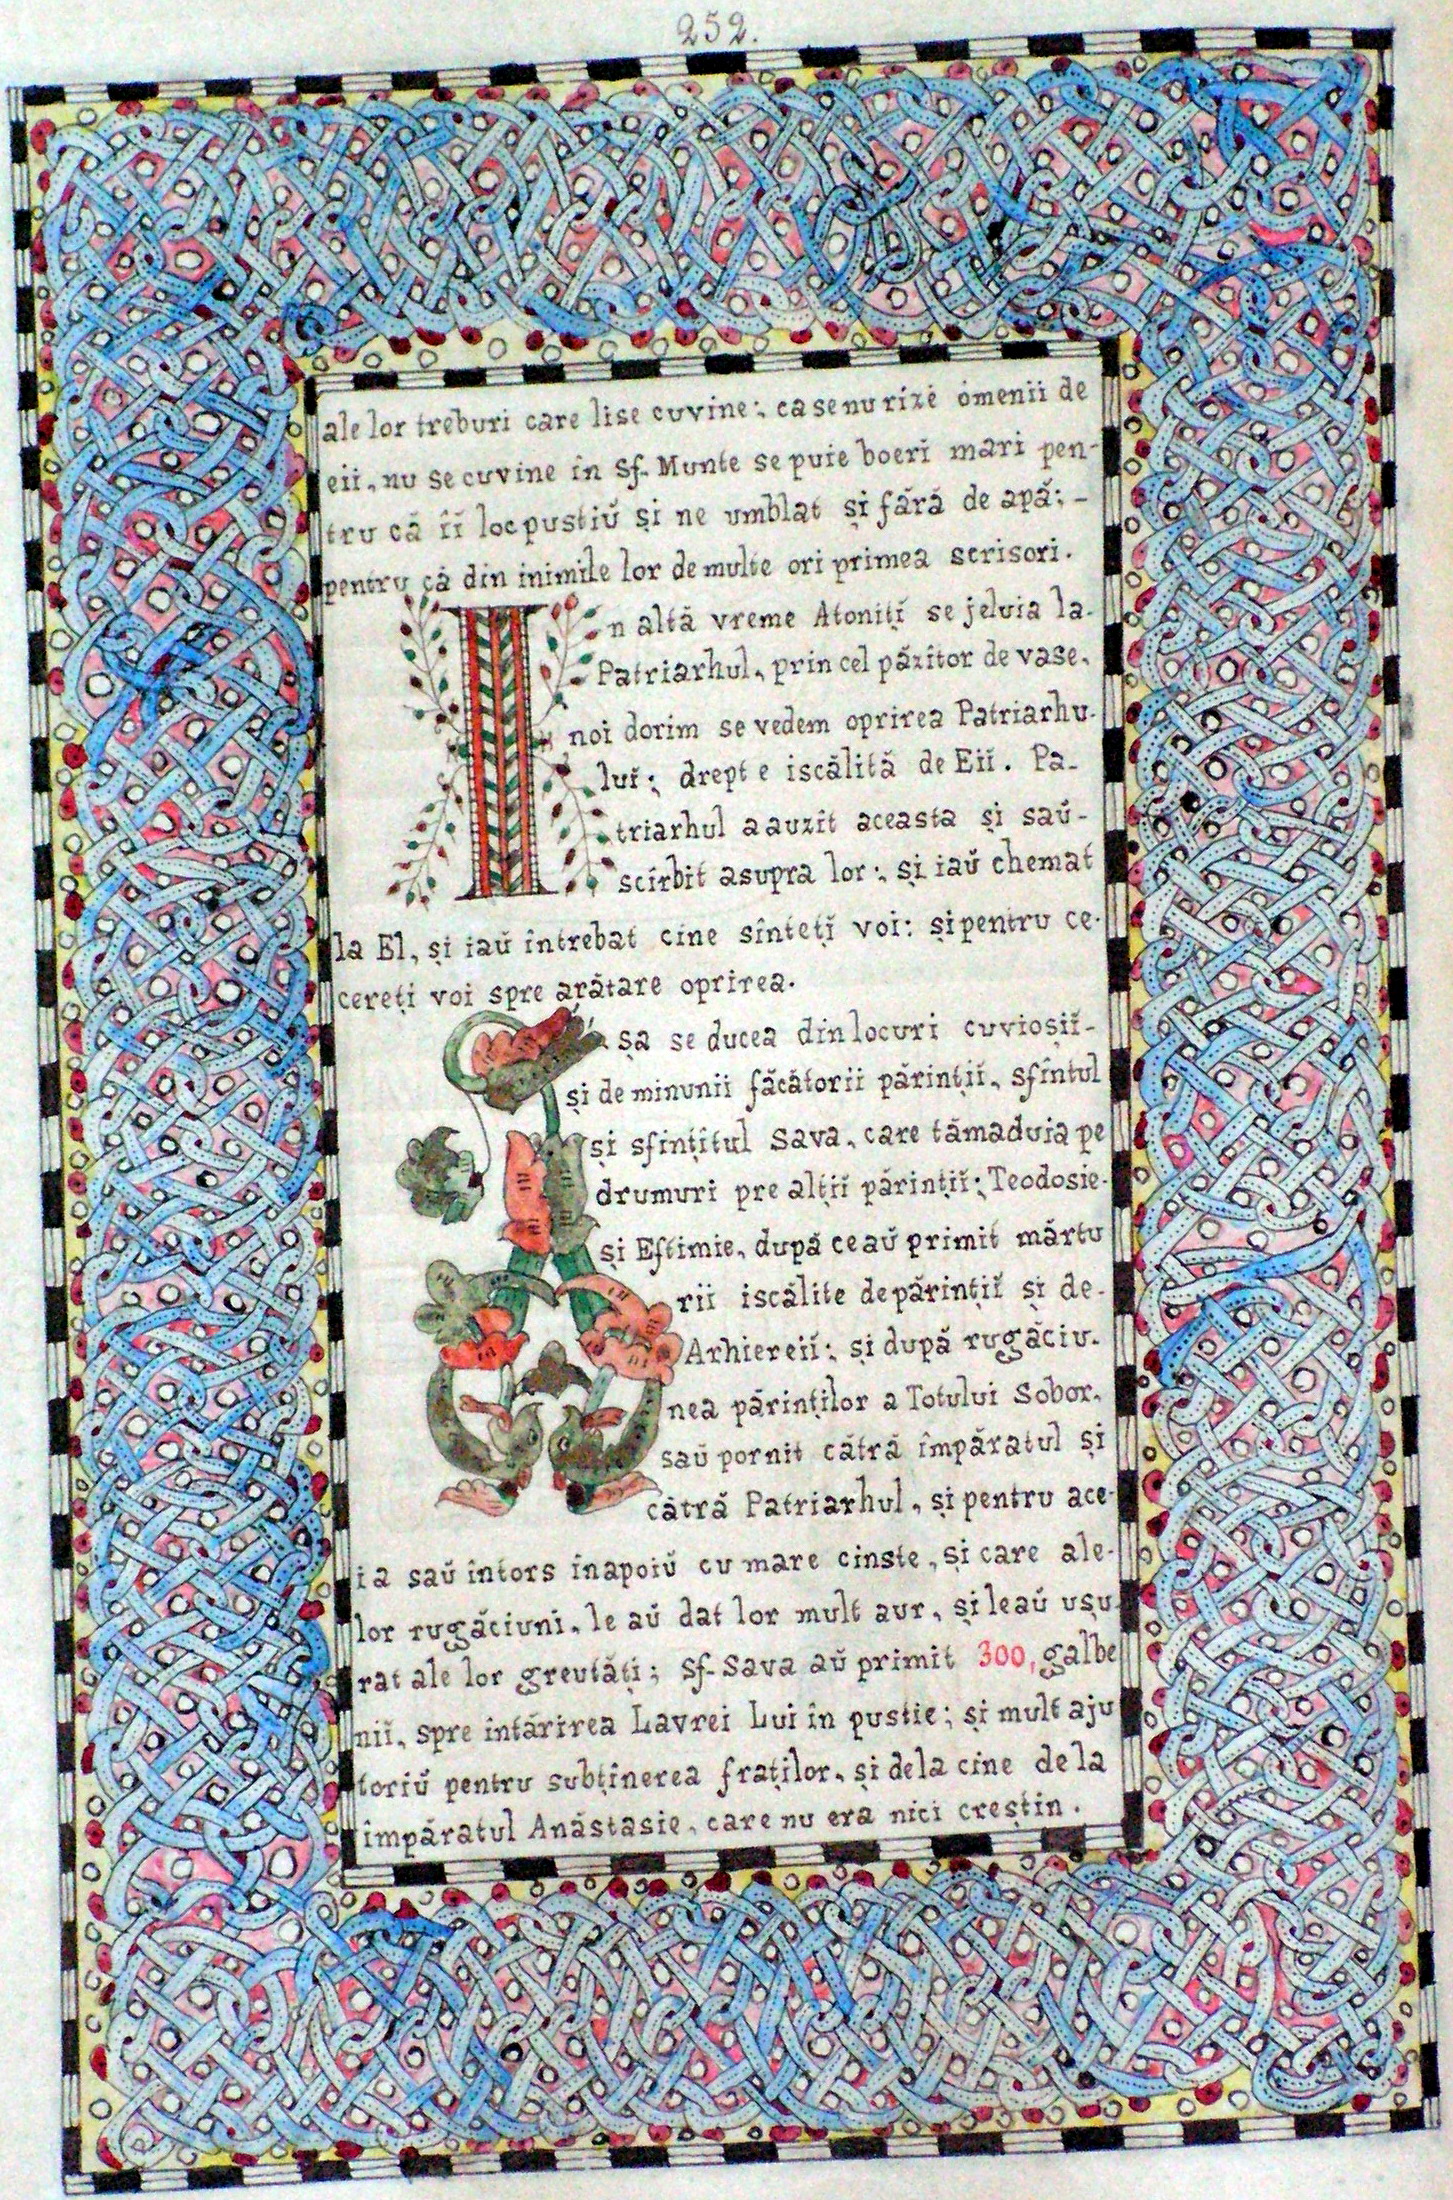 252.
ale lor treburi care lise cuvine:, casenurizé ómenii de
eii, nu se cuvine în Sf. Munte se puie boeri mari pen-
tru că îĭ loc pustiŭ și ne umblat și fără de apă:, -
pentru că din inimile lor de multe ori primea scrisori.
În altă vreme Atonițĭ se jeluia la-
Patriarhul, prin cel păzitor de vase,
noi dorim se vedem oprirea Patriarhu-
luĭ:, drept e iscălită de Eiĭ. Pa-
triarhul a auzit aceasta și saŭ-
scîrbit asupra lor:, și iaŭ chemat
la El, și iaŭ întrebat cine sînteți voi: și pentru ce-
cereți voi spre arătare oprirea.
Așa se ducea din locuri cuvioșiĭ-
și de minunii făcătorii părințiĭ, sfîntul
și sfințîtul Sava, care tămaduia pe
drumuri pre alțiĭ părințiĭ:, Teodosie-
și Eftimie, după ce aŭ primit mărtu
rii iscălite de părințiĭ și de-
Arhiereiĭ:, și după rugăciu-
nea părinților a Totului Sobor,
saŭ pornit cătră împăratul și
cătră Patriarhul, și pentru ace-
ia saŭ întors înapoiŭ cu mare cinste, și care ale-
lor rugăciuni, le aŭ dat lor mult aur, și leaŭ ușu-
rat ale lor greutăți; Sf. Sava aŭ primit 300, galbe
niĭ, spre întărirea Lavrei Lui în pustie; și mult aju
toriŭ pentru subținerea fraților, și dela cine de la
împăratul Anăstasie, care nu era nici creștin.